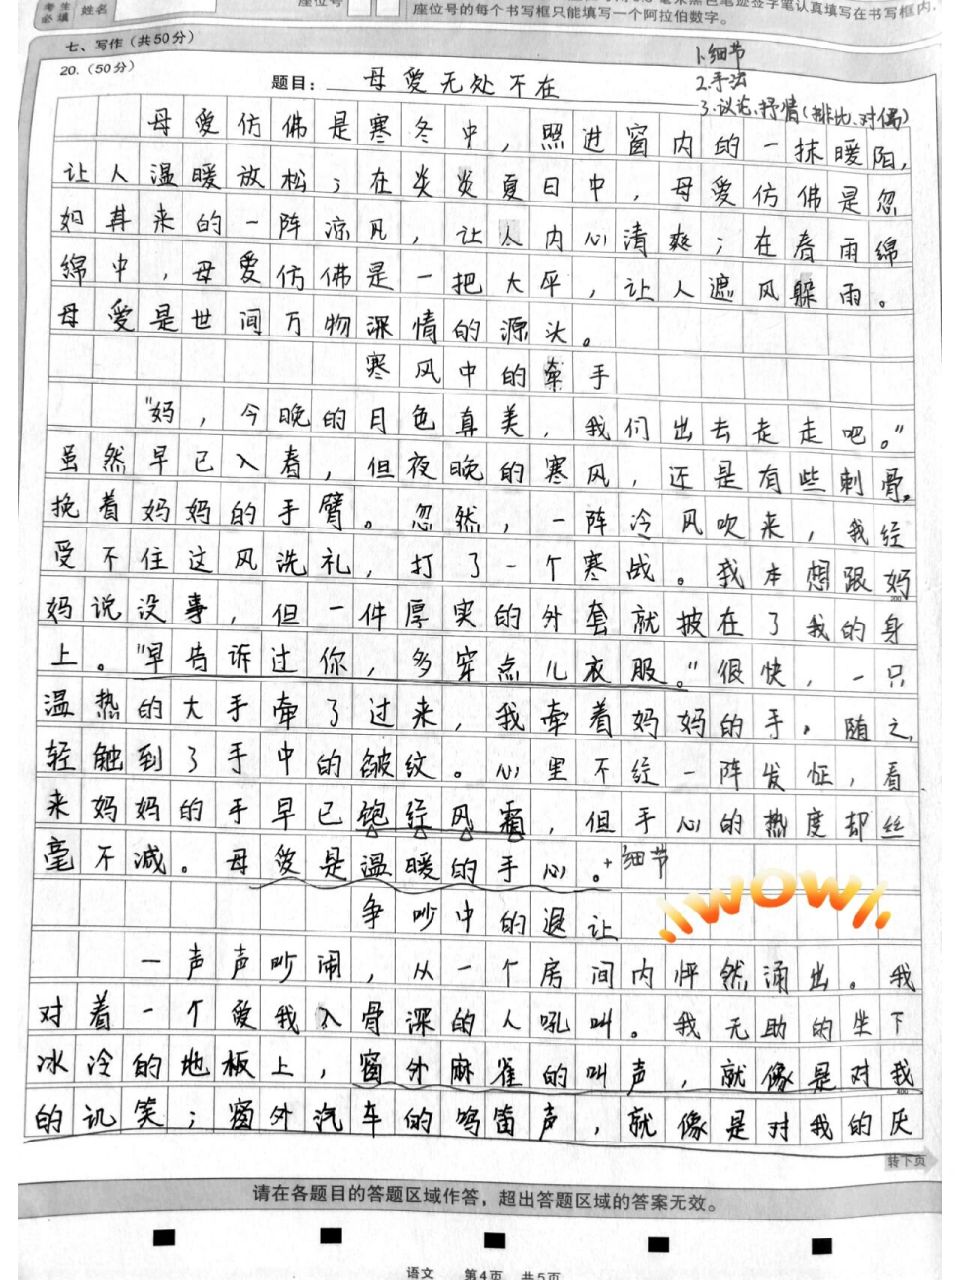 考生必填 姓名 座位号
座位号的每个书写框只能填写一个阿拉伯数字。
七、写作（共50分）
20.（50分）
题目：母爱无处不在
1.细节
2.手法
3.议论、抒情(排比、对偶)
母爱仿佛是寒冬中，照进窗内的一抹暖阳，
让人温暖放松；在炎炎夏日中，母爱仿佛是忽
如其来的一阵凉风，让人内心清爽；在春雨绵
绵中，母爱仿佛是一把大伞，让人遮风躲雨。
母爱是世间万物深情的源头。
寒风中的牵手
"妈，今晚的月色真美，我们出去走走吧。"
虽然早已入春，但夜晚的寒风，还是有些刺骨。
挽着妈妈的手臂。忽然，一阵冷风吹来，我经
受不住这风洗礼，打了一个寒战。我本想跟妈
妈说没事，但一件厚实的外套就披在了我的身
上。"早告诉过你，多穿点儿衣服。"很快，一只
温热的大手牵了过来，我牵着妈妈的手，随之，
轻触到了手中的皱纹。心里不经一阵发怔，看
来妈妈的手早已饱经风霜，但手心的热度却丝
毫不减。母爱是温暖的手心。+细节
争吵中的退让
!!WOW!!
一声声吵闹，从一个房间内怦然涌出。我
对着一个爱我入骨深的人吼叫。我无助的坐下
冰冷的地板上，窗外麻雀的叫声，就像是对我
的讥笑；窗外汽车的鸣笛声，就像是对我的厌
转下页
请在各题目的答题区域作答，超出答题区域的答案无效。
语文 第4页 共5页